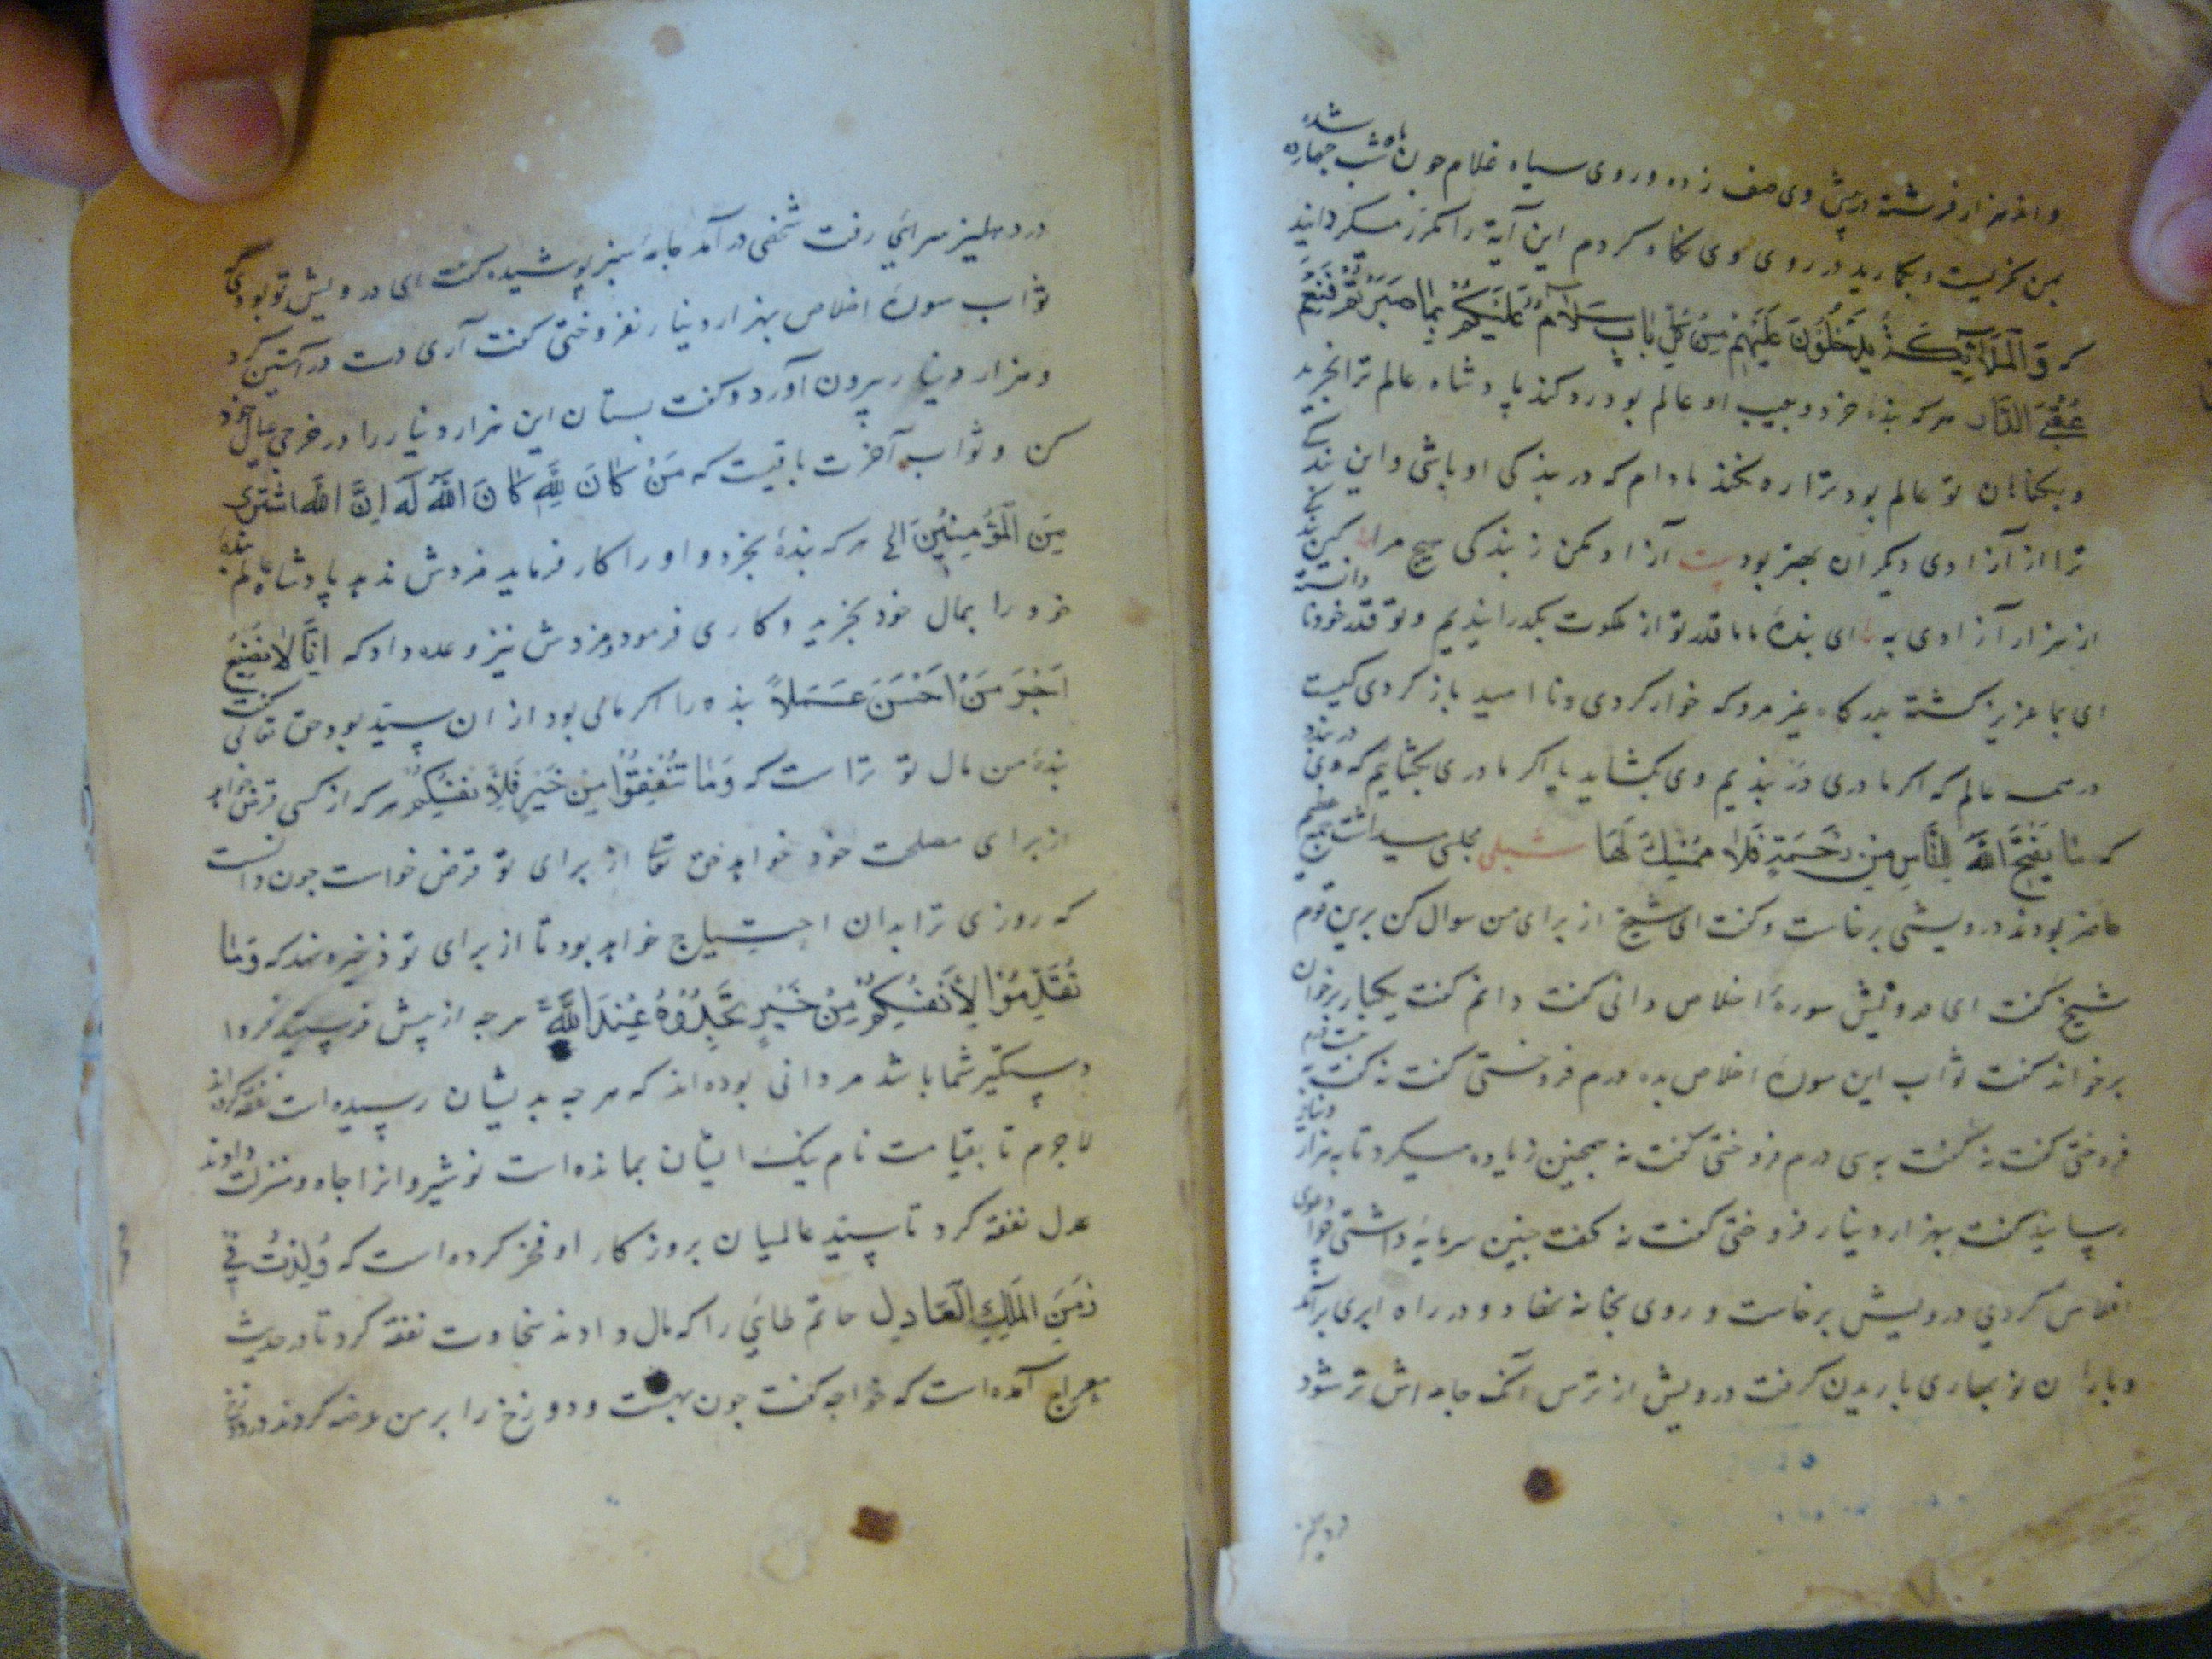 و اند هزار فرشته در پیش وی صف زده و روی سیاه غلام چون ماه شب چهارده شده
بمن نکریست و بکارید در روی وی نکاه کردم این آیة را مکرر میکردانید
که وَالْمَلَآئِكَةُ يَدْخُلُونَ عَلَيْهِمْ مِنْ كُلِّ بَابٍ سَلَامٌ عَلَيْكُمْ بِمَا صَبَرْتُمْ فَنِعْمَ
عُقْبَى الدَّارِ هر که بندهٔ خرد و بعیب او عالم بود رد کند پادشاه عالم ترا بخرید
و بکناهان تو عالم بود ترا رد نکند مادام که در بندکی او باشی و این بندکی
ترا از آزادی دیکران بهتر بود بیت آزاد مکن ز بندکی هیچ مرا کین بندکی
از هزار آزادی به ای بندهٔ ما ما قدر تو از ملکوت بکذرانیدیم و تو قدر خود ندانستهٔ
ای بما عزیز کشته بدرکاه غیر مرو که خوار کردی و نا امید باز کردی کیست
در همه عالم که اکر ما دری در بندیم وی بکشاید یا اکر ما دری بکشاییم که وی در بندد
که مَا يَفْتَحِ اللَّهُ لِلنَّاسِ مِنْ رَحْمَةٍ فَلَا مُمْسِكَ لَهَا شبلی مجلس میداشت جمع عظیم
حاضر بودند درویشی برخاست و کفت ای شیخ از برای من سوال کن برین قوم
شیخ کفت ای درویش سورهٔ اخلاص دانی کفت دانم کفت یکبار برخوان
برخواند کفت ثواب این سورهٔ اخلاص بده درم فروختی کفت نه کفت به بیست درم
فروختی کفت نه کفت به سی درم فروختی کفت نه همچنین زیاده میکرد تا به هزار دینار
رسانید کفت بهزار دینار فروختی کفت نه کفت چنین سرمایه داشتی چرا دعوی
افلاس کردی درویش برخاست و روی بخانه نهاد و در راه ابری برآمد
و باران نو بهاری باریدن کرفت درویش از ترس آنک جامه اش تر شود
در دهلیز
در دهلیز سرائی رفت شخصی درآمد جامهٔ سبز پوشیده کفت ای درویش تو بودی که
ثواب سورهٔ اخلاص بهزار دینار نفروختی کفت آری دست در آستین کرد
و هزار دینار بیرون آورد و کفت بستان این هزار دینار را در خرجی عیال خود
کن و ثواب آخرت باقیست که مَنْ كَانَ لِلَّهِ كَانَ اللَّهُ لَهُ اِنَّ اللَّهَ اشْتَرَى
مِنَ الْمُؤْمِنِينَ الی هر که بندهٔ بخرد و او را کار فرماید مزدش ندهد پادشاه عالم بندهٔ
خود را بمال خود بخرید و کاری فرمود و مزدش نیز وعده داد که اِنَّا لَا نُضِيعُ
اَجْرَ مَنْ اَحْسَنَ عَمَلاً بنده را اکر مالی بود از ان سید بود حق تعالی کفت
بندهٔ من مال تو تراست که وَمَا تُنْفِقُوا مِنْ خَيْرٍ فَلِأَنْفُسِكُمْ هر که از کسی قرض خواهد
از برای مصلحت خود خواهد حق تعا از برای تو قرض خواست چون دانست
که روزی ترا بدان احتیاج خواهد بود تا از برای تو ذخیره نهد که وَمَا
تُقَدِّمُوا لِأَنْفُسِكُمْ مِنْ خَيْرٍ تَجِدُوهُ عِنْدَ اللَّهِ هر چه از پیش فرستید فردا
دستکیر شما باشد مردانی بوده اند که هر چه بدیشان رسیده است نفقه کرده اند
لاجرم تا بقیامت نام نیک ایشان بمانده است نوشیروانرا جاه و منزلت دادند
عدل نفقه کرد تا سید عالمیان بروزکار او فخر کرده است که وُلِدْتُ فِي
زَمَنِ الْمَلِكِ الْعَادِلِ حاتم طائی را که مال دادند سخاوت نفقه کرد تا در حدیث
معراج آمده است که خواجه کفت چون بهشت و دوزخ را بر من عرضه کردند در دوزخ